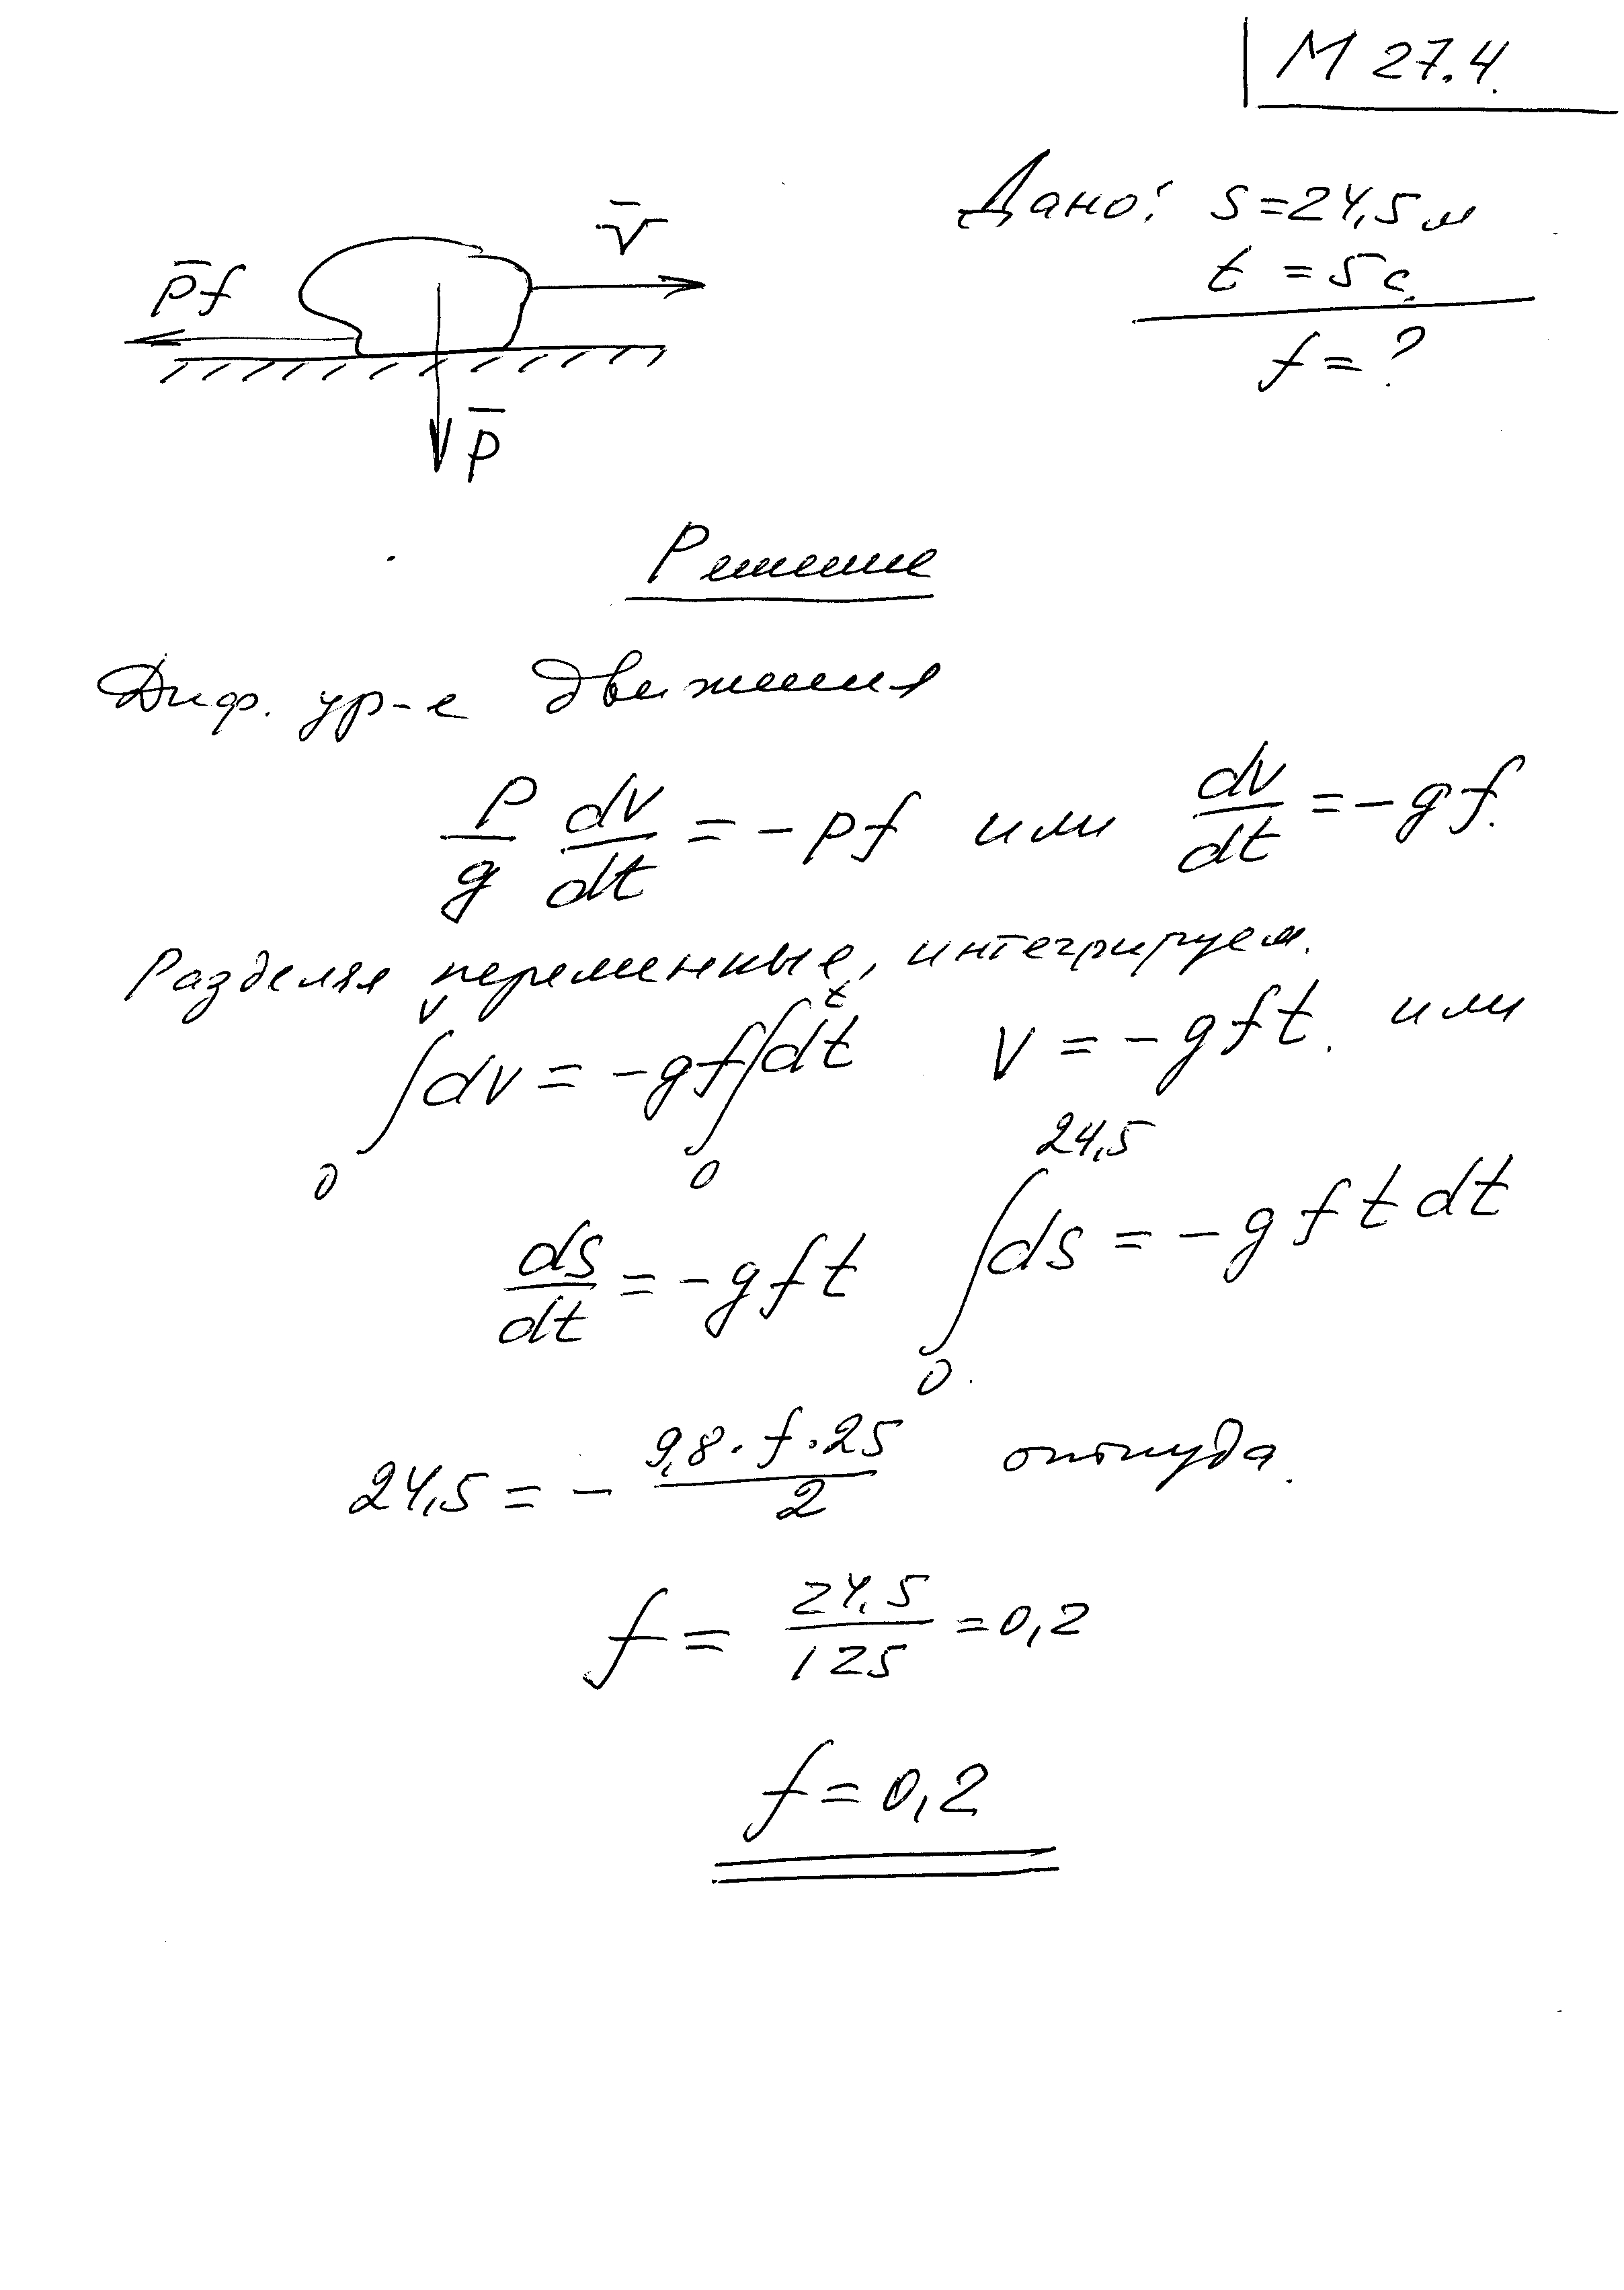 М 27.4.
Дано: S = 24,5 м
t = 5 с.
f = ?
p̄f
v̄
p̄
Решение
Диф. ур-е движения
P/g dv/dt = - pf или dv/dt = - gf.
Разделяя переменные, интегрируем.
∫₀ᵛ dv = - gf ∫₀ᵗ dt V = - gft. или
ds/dt = - gft ∫₀²⁴,⁵ ds = - gft dt
24,5 = - 9,8 · f · 25 / 2 откуда.
f = 24,5 / 125 = 0,2
f = 0,2